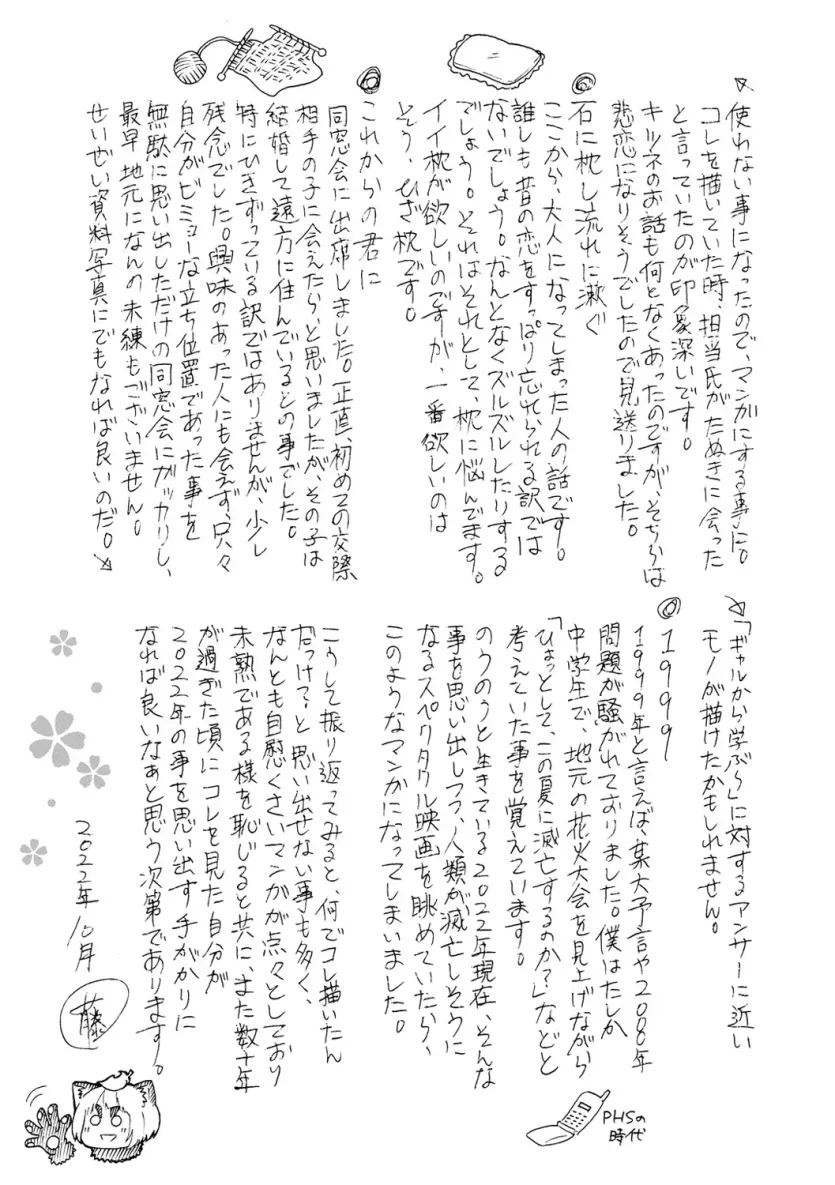 使わない事になったので、マンガにする事に。
コレを描いていた時、担当氏がたぬきに会った
と言っていたのが印象深いです。
キツネのお話も何となくあったのですが、そちらは
悲恋になりそうでしたので見送りました。
石に枕し流れに漱ぐ
ここから、大人になってしまった人の話です。
誰しも昔の恋をすっぱり忘れられる訳では
ないでしょう。なんとなくズルズルしたりする
でしょう。それはそれとして、枕に悩んでます。
イイ枕が欲しいのですが、一番欲しいのは
そう、ひざ枕です。
これからの君に
同窓会に出席しました。正直、初めての交際
相手の子に会えたらと思いましたが、その子は
結婚して遠方に住んでいるとの事でした。
特にひきずっている訳ではありませんが、少し
残念でした。興味のあった人にも会えず、只々
自分がビミョーな立ち位置であった事を
無駄に思い出しただけの同窓会にガッカリし、
最早地元になんの未練もございません。
せいぜい資料写真にでもなれば良いのだ。
「ギャルから学ぶら」に対するアンサーに近い
モノが描けたかもしれません。
1999
1999年と言えば、某大予言や2000年
問題が騒がれておりました。僕はたしか
中学生で、地元の花火大会を見上げながら
「ひょっとして、この夏に滅亡するのか?」などと
考えていた事を覚えています。
のうのうと生きている2022年現在、そんな
事を思い出しつつ、人類が滅亡しそうに
なるスペクタクル映画を眺めていたら、
このようなマンガになってしまいました。
こうして振り返ってみると、何でコレ描いたん
だっけ?と思い出せない事も多く、
なんとも自慰くさいマンガが点々としており
未熟である様を恥じると共に、また数十年
が過ぎた頃にコレを見た自分が
2022年の事を思い出す手がかりに
なれば良いなぁと思う次第であります。
2022年10月
藤
PHSの
時代